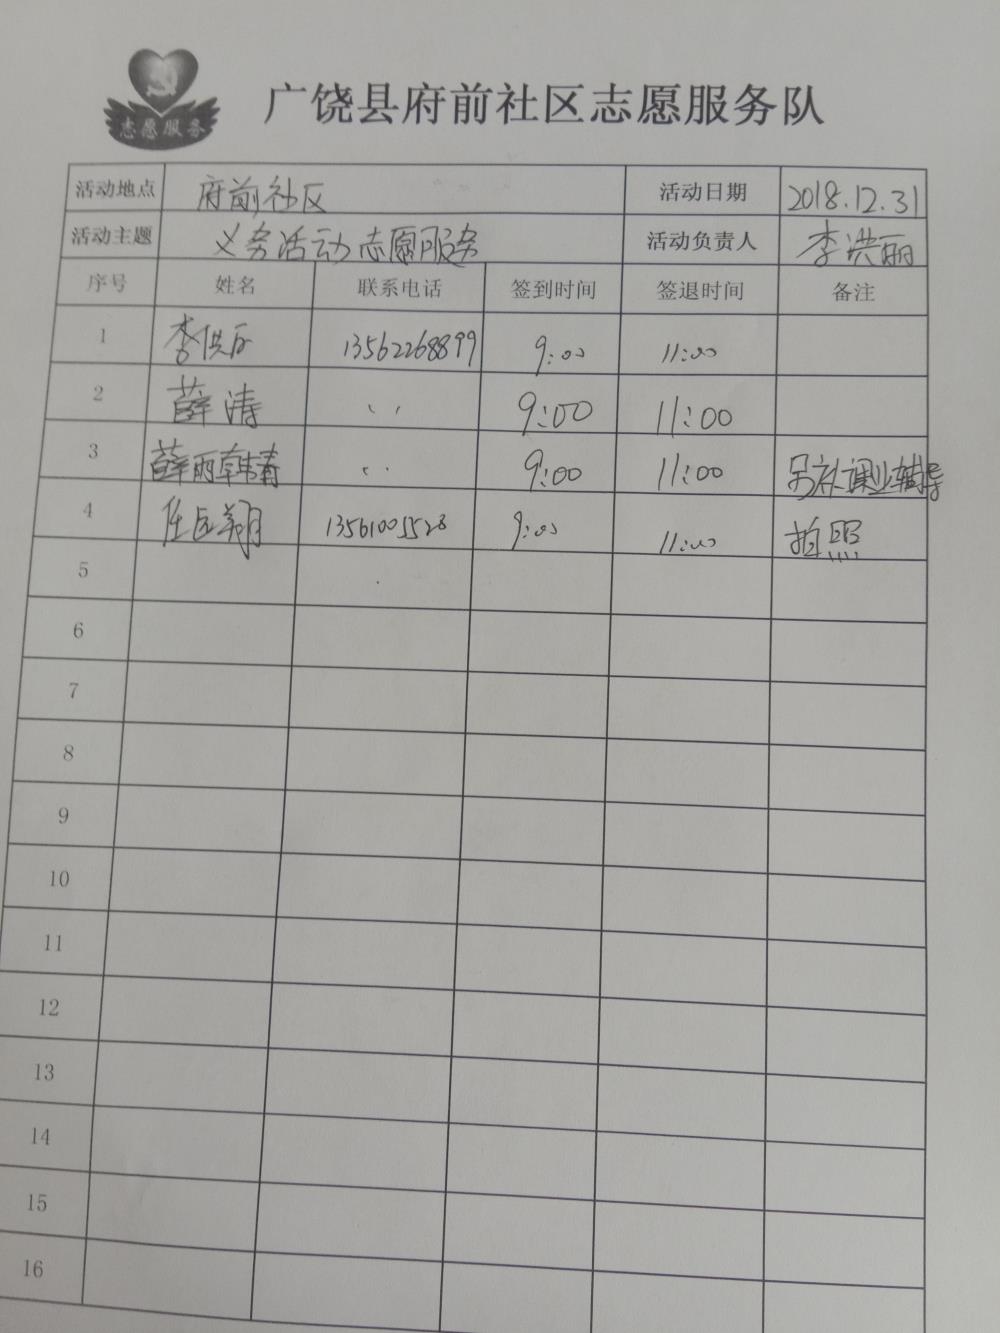 志愿服务
广饶县府前社区志愿服务队
活动地点 府前社区 活动日期 2018.12.31
活动主题 义务活动志愿服务 活动负责人 李洪丽
序号 姓名 联系电话 签到时间 签退时间 备注
1 李 13562268899 9:00 11:00
2 薛涛 〃 9:00 11:00
3 薛丽 〃 9:00 11:00 课业辅导
4 13561005528 9:00 11:00 拍照
5
6
7
8
9
10
11
12
13
14
15
16